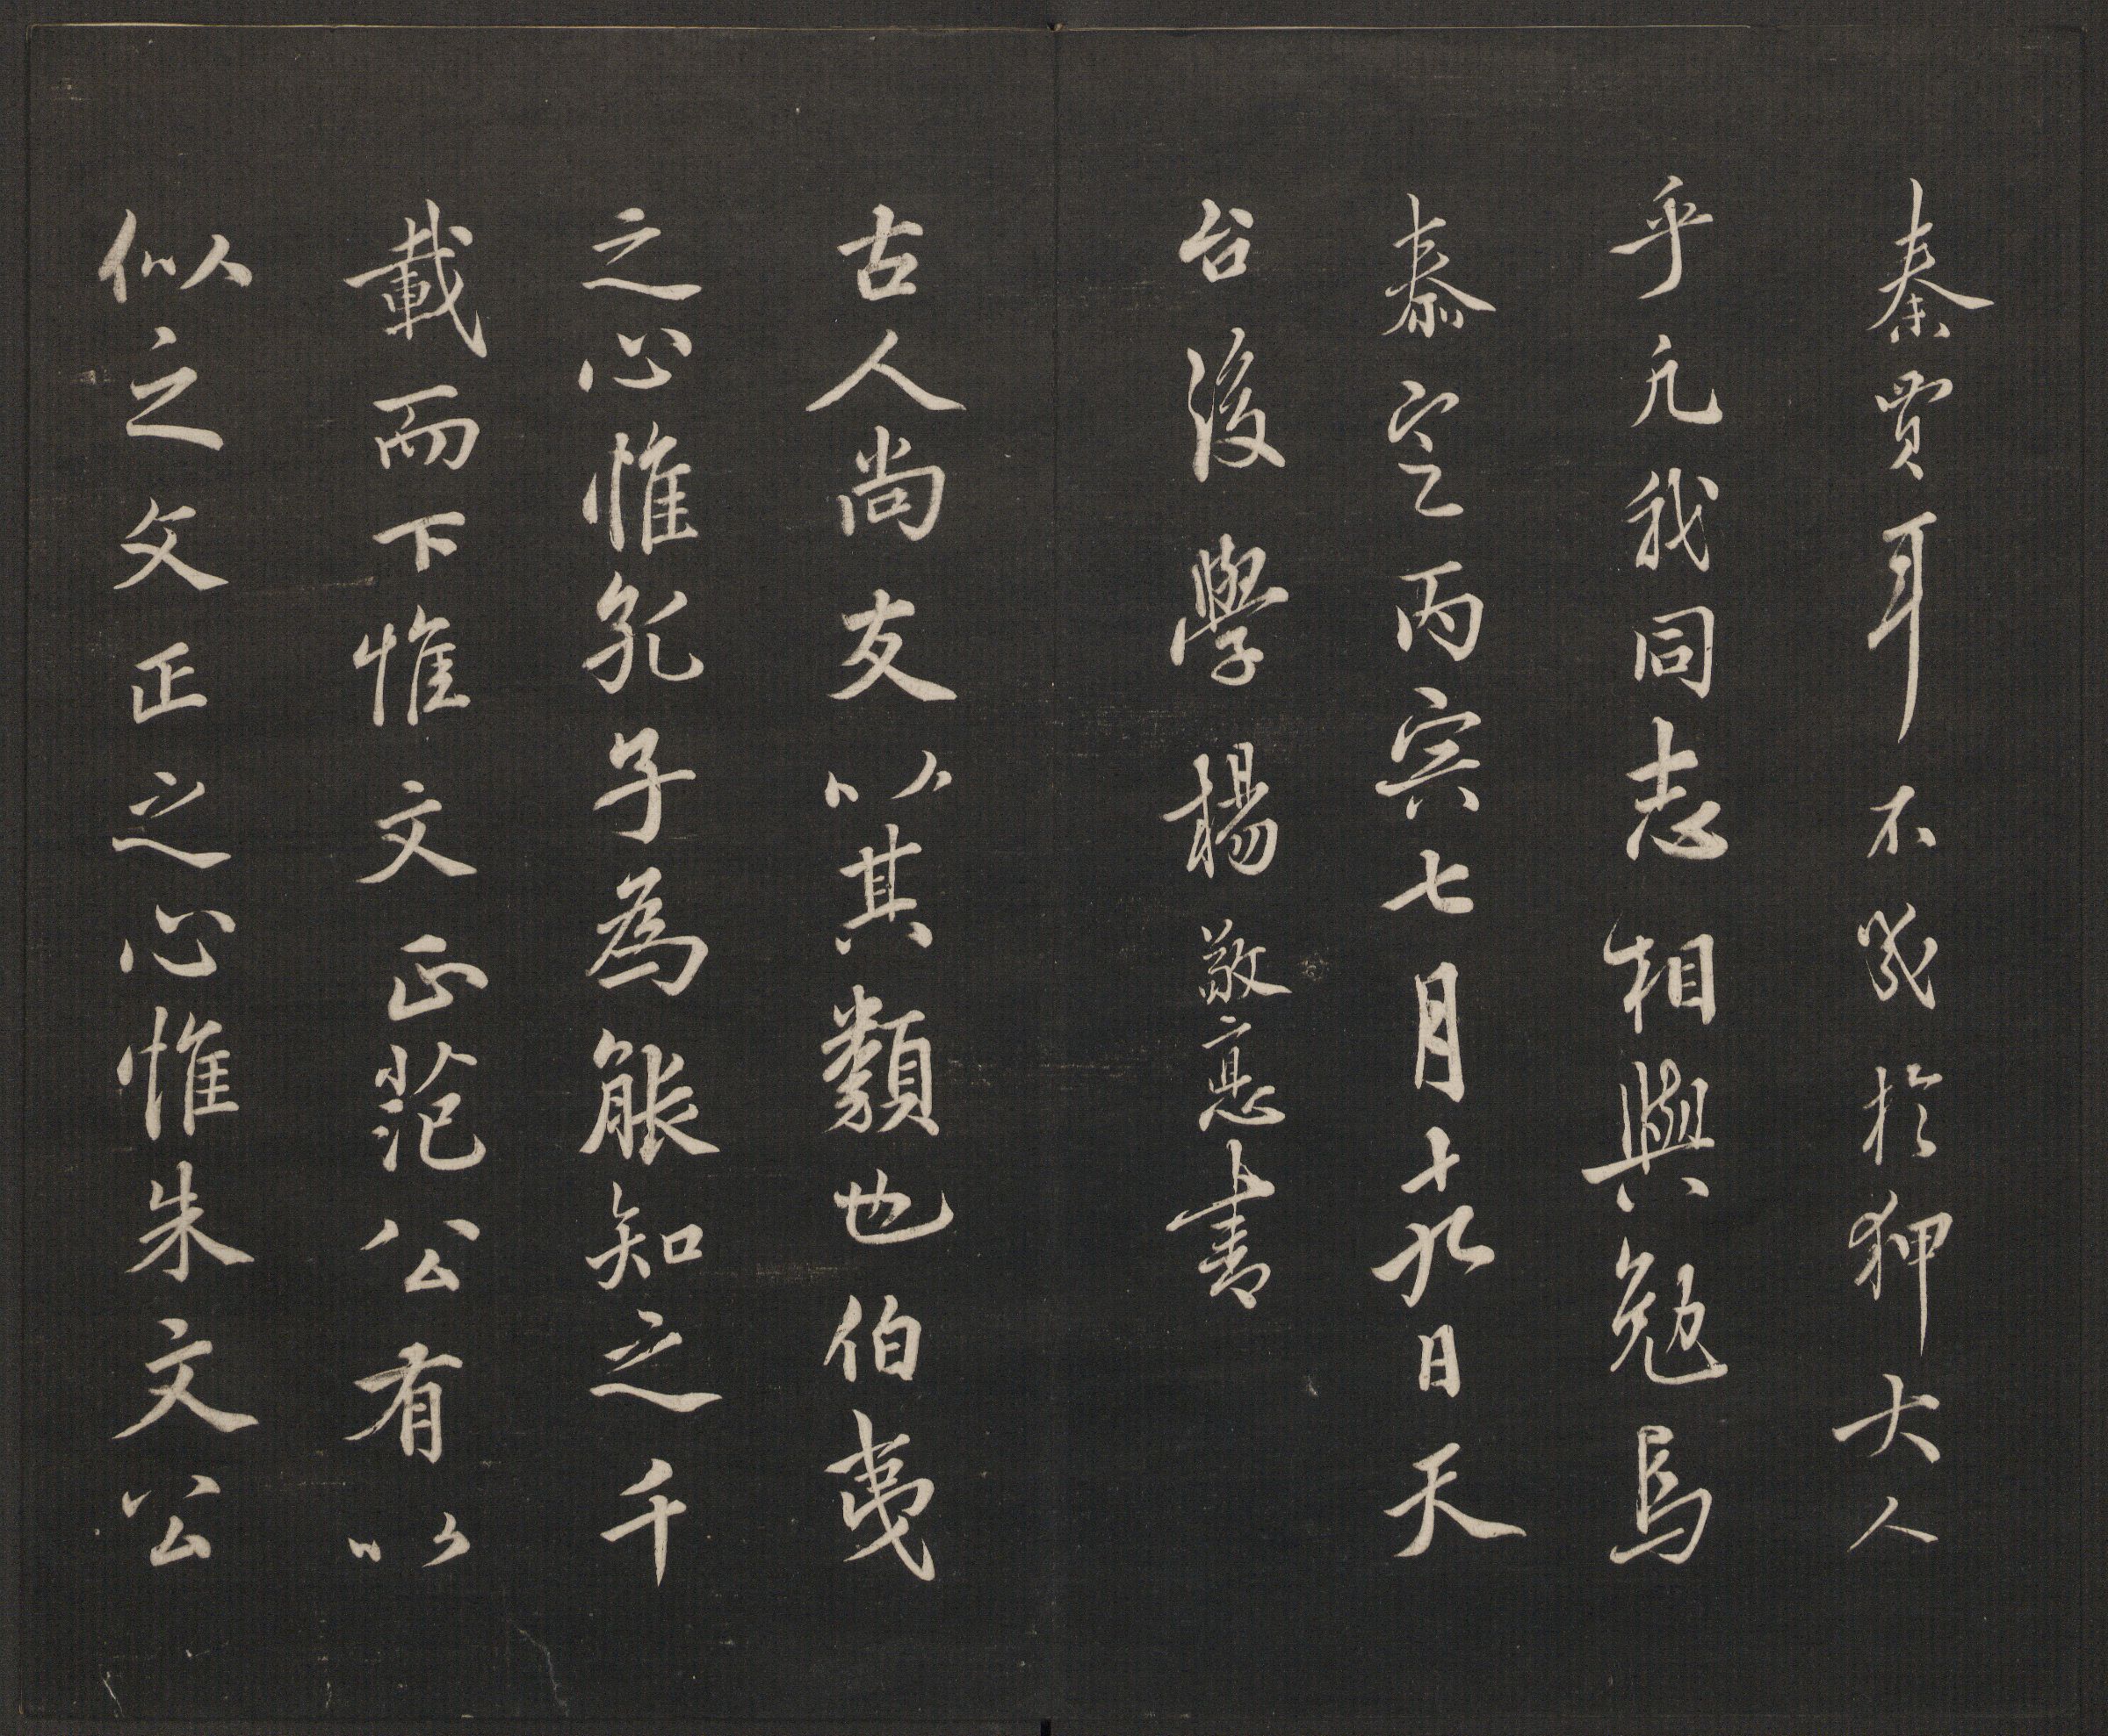 秦賈耳不幾於狎大人
乎凡我同志相與勉焉
泰定丙寅七月十九日天
台後學楊敬悳書
古人尚友以其類也伯夷
之心惟孔子為能知之千
載而下惟文正范公有以
似之文正之心惟朱文公